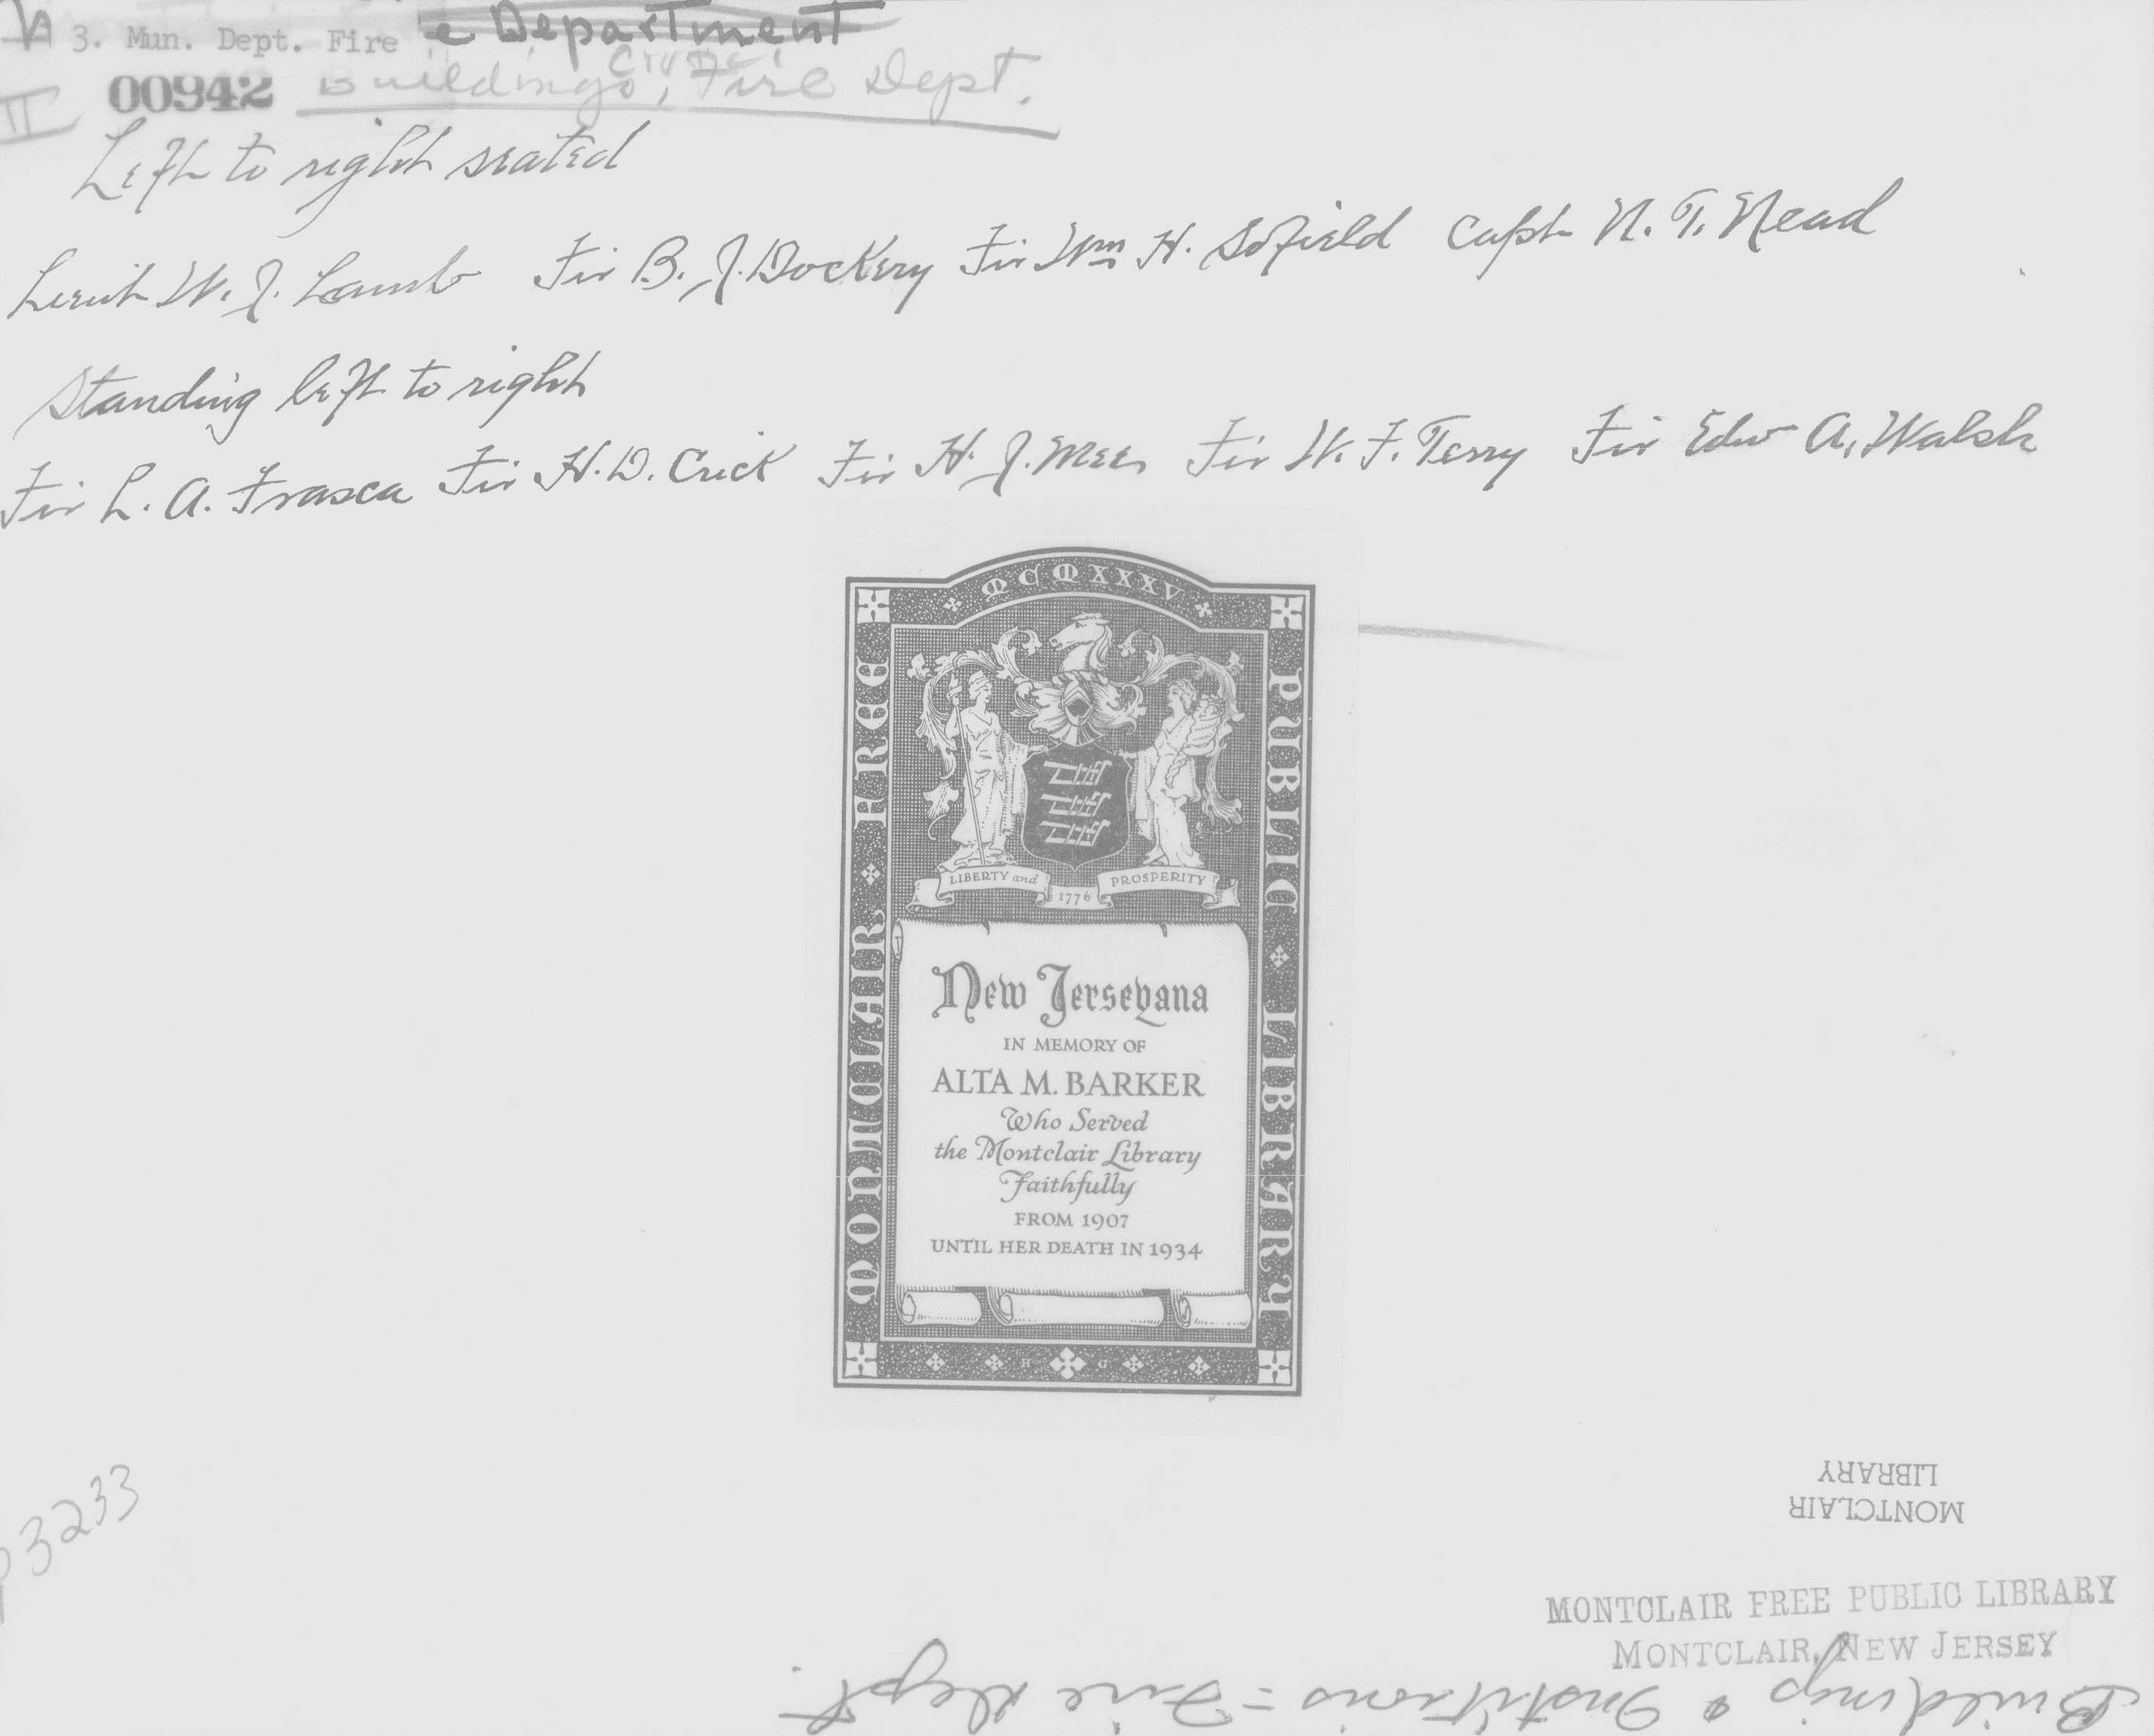 3. Mun. Dept. Fire e Department
00942 Buildings, Fire Dept.
II
Left to right seated
Lieut W. J. Lamb Fir B. J. Dockery Fir Wm H. Sofield Capt N. T. Nead
Standing left to right
Fir L. A. Frasca Fir H. D. Crick Fir H. J. Mees Fir W. F. Terry Fir Edw A. Walsh
MCMXXXV
MONTCLAIR FREE
PUBLIC LIBRARY
LIBERTY and
1776
PROSPERITY
New Jerseyana
IN MEMORY OF
ALTA M. BARKER
Who Served
the Montclair Library
Faithfully
FROM 1907
UNTIL HER DEATH IN 1934
H G
3233
MONTCLAIR
LIBRARY
MONTCLAIR FREE PUBLIC LIBRARY
MONTCLAIR, NEW JERSEY
Buildings & Institutions = Fire Dept.